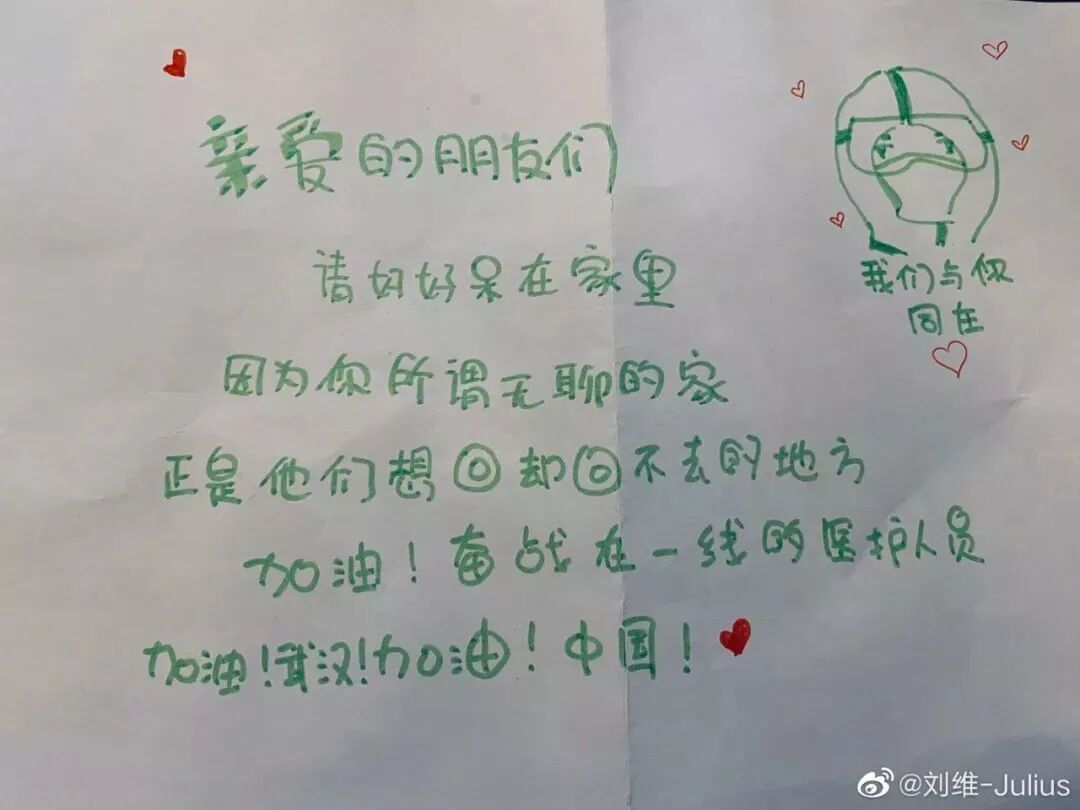 亲爱的朋友们
请好好呆在家里
因为你所谓无聊的家
正是他们想回却回不去的地方
加油！奋战在一线的医护人员
加油！武汉！加油！中国！
我们与你
同在
@刘维-Julius